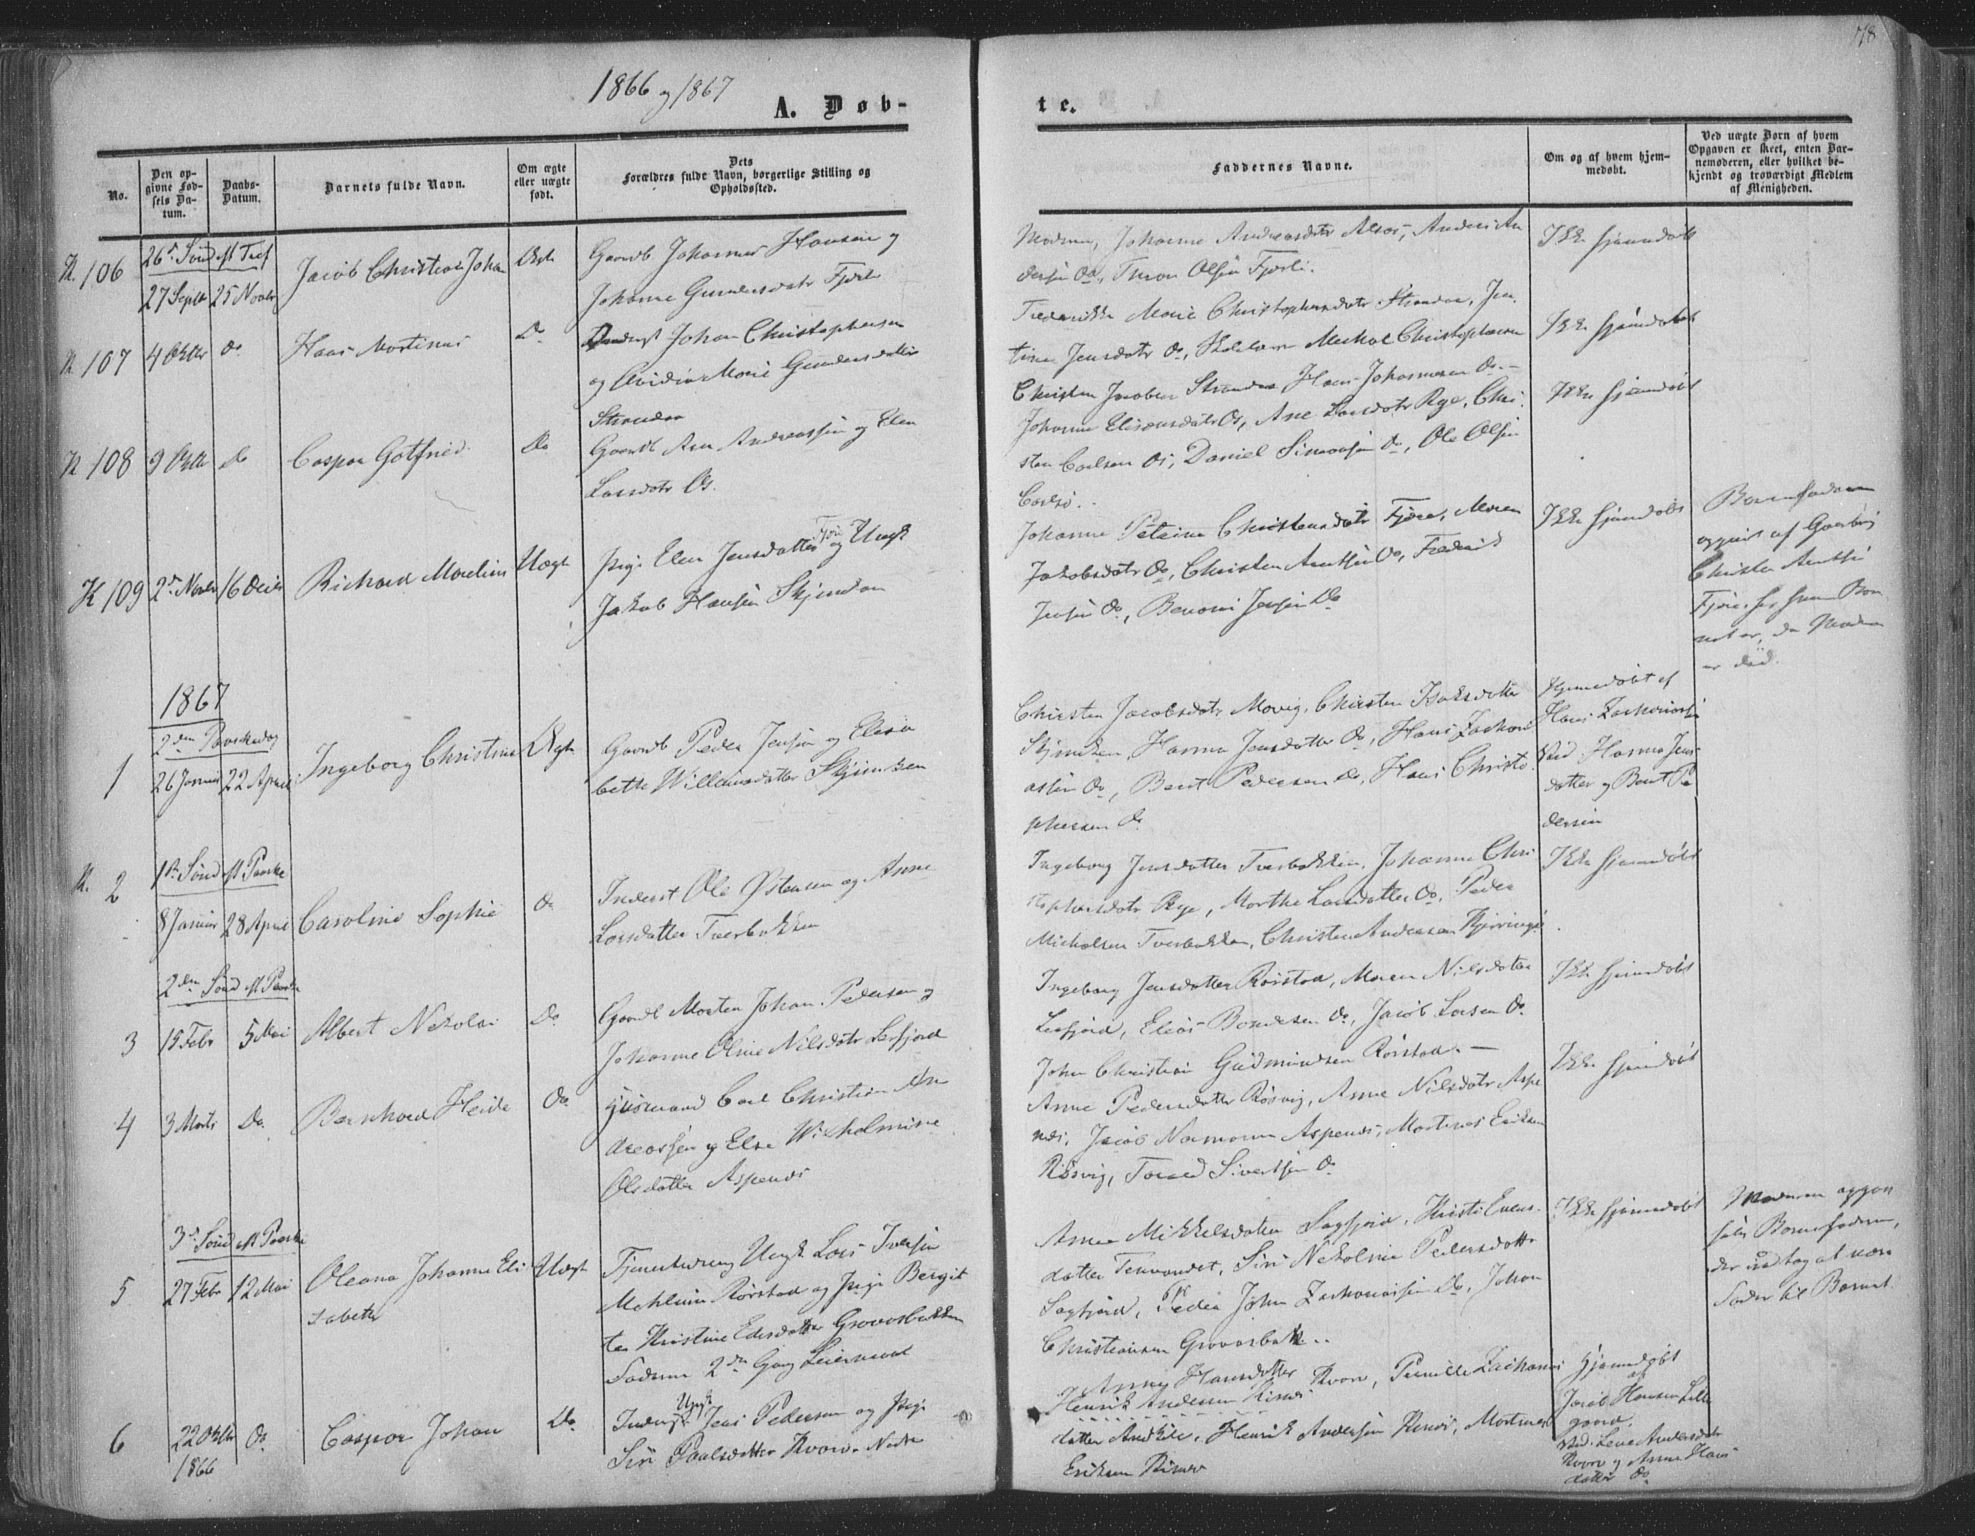 78
1866 og 1867
A. Døb-
te.
No.
Den op-
givne Fød-
sels Da-
tum.
Daabs-
Datum.
Barnets fulde Navn.
Om ægte
eller uægte
født.
Dets
Forældres fulde Navn, borgerlige Stilling og
Opholdssted.
Faddernes Navne.
Om og af hvem hjem-
medøbt.
Ved uægte Børn af hvem
Opgaven er skeet, enten Bar-
nemoderen, eller hvilket be-
kjendt og troværdigt Medlem
af Menigheden.
K. 106
26de Sønd. f. Tref
27 Septbr 25 Novbr
Jacob Christian Johan
Ægte
Gaardb Johannes Hansen og
Johanne Gundersdatr Fjerli
Moderen, Johanne Andreasdatr Alsos, Anders An
dersen Do, Thron Olsen Fjerli.
Ikke hjemmdøbt
K 107
4 Oktbr do
Hans Martinus
Do
Johan Christophersen
og Marie Gundersdatter
Strandaa
Frederikke Marie Christophersdatr Strandaa, Jen
tine Jensdatr Do, Michal Christophersen
Christen Jacobsen Strandaa Hans Johannesen Do.
Ikke hjemmdøbt
K 108
9 Oktbr Do
Caspar Gotfried
Do
Gaardb Arn Andreassen og Elen
Larsdatr Os.
Johanne Eliseusdatr Os, Ane Larsdatr Røge, Chri
sten Carlsen Os, Daniel Simonsen Do, Ole Olsen
Ikke hjemmdøbt
K 109
2de Novbr 16 Decbr
Richard Mardinius
Uægte
Pige Elen Jensdatter Fjære og Ungk
Jakob Hansen Skjendan
Johanne Petrine Christensdatr Fjære, Maren
Jakobsdatr Do, Christen Arntsen Do, Frederik
Jensen Do, Benoni Jensen Do
Ikke hjemmdøbt
Barnefaderen
opgivet af Gaardbr
Christen Arntsen
Fjære hos hvem Bar
net er, da Moderen
er død.
1867
2den Paaskedag
1
26 Januar 22 April
Ingeborg Christine
Ægte
Gaardb Peder Jensen og Elisa
beth Willumsdatter
Christen Jacobsdatr Movig, Christen Isaksdatter
Hanna Jensdatter Do, Hans Zachari
assen Do, Bent Pedersen Do, Hans Christo
phersen Do
Hjemmedøbt af
Hans Zachariassen
Vid. Hanna Jens
datter og Bent Pe
dersen
K. 2
1ste Sønd. f. Paaske
8 Januar 28 April
Caroline Sophie
Do
Inderst Ole Østensen og Anne
Larsdatter Tverbakken
Ingeborg Jensdatter Tverbakken, Johanne Chri
stophersdatr Røge, Marthe Larsdatter Do, Peder
Michalsen Tverbakken, Christen Andersen
Ikke hjemmdøbt
2den Sønd. f. Paaske
3
15 Febr 5 Mai
Albert Nikolai
Do
Gaardb Morten Johan Pedersen og
Johanne Oline Nilsdatr Leifjord
Ingeborg Jensdatter Rørstad, Maren Nilsdatter
Leifjord, Elias Do, Jacob Larsen Do
John Christian Gudmundsen Rørstad.
Ikke hjemmdøbt
4
3 Marts Do
Bernhard Heide
Do
Huusmand Carl Christian An
dreassen og Else Wilhelmine
Olsdatter Aspenes
Anne Pedersdatter Røsvig, Anne Nilsdatr Aspe
nes, Jacob Normann Aspenes, Martinus Eriksen
Røsvig, Torud Sivertsen Do
Ikke hjemmdøbt
3de Sønd. f. Paaske
5
27 Febr 12 Mai
Oleana Johanne Eli
sabeth
Uægte
Tjenestedreng Ungk Lars Iversen
Rørstad og Pige Bergit
te Kristine Edisdatter Grovasbakken
Faderens 2den Gang Leiermaal
Anne Mikkelsdatter Sagfjord, Kirsti Evens
datter Tennvandet, Siri Nikoline Pedersdatter
Sagfjord, Peder John Zachariassen Do, Johan
Christiansen Grovasbak
Ikke hjemmdøbt
Moderen opgav
selv Barnefaderen,
der vedtog at være
Fader til Barnet
6
22 Oktbr 1866
Do
Caspar Johan
Do
Inderst Ungk Jens Pedersen og Pige
Siri Paalsdatter Kvarv Nedre
Anne Hansdatter Kvarv, Pernille Zacharias
Henrik Andersen Risnes
datter Andkile, Henrik Andersen Risnes, Martinus
Eriksen Risnes
Hjemmdøbt
af
Jacob Hansen Lille
gaard.
Vid. Lene Andersdatr
Kvarv og Anne Hans
datter Do